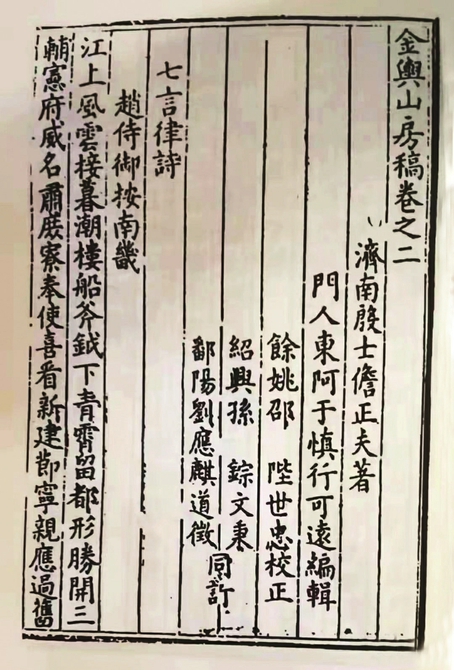 金輿山房稿卷之二
濟南殷士儋正夫著
門人東阿于慎行可遠編輯
餘姚邵 陛世忠校正
紹興孫 錝文秉
鄱陽劉應麒道徵
同訂
七言律詩
趙侍御按南畿
江上風雲接暮潮樓船斧鉞下青霄留都形勝開三
輔憲府威名肅庶寮奉使喜看新建節寧親應過舊